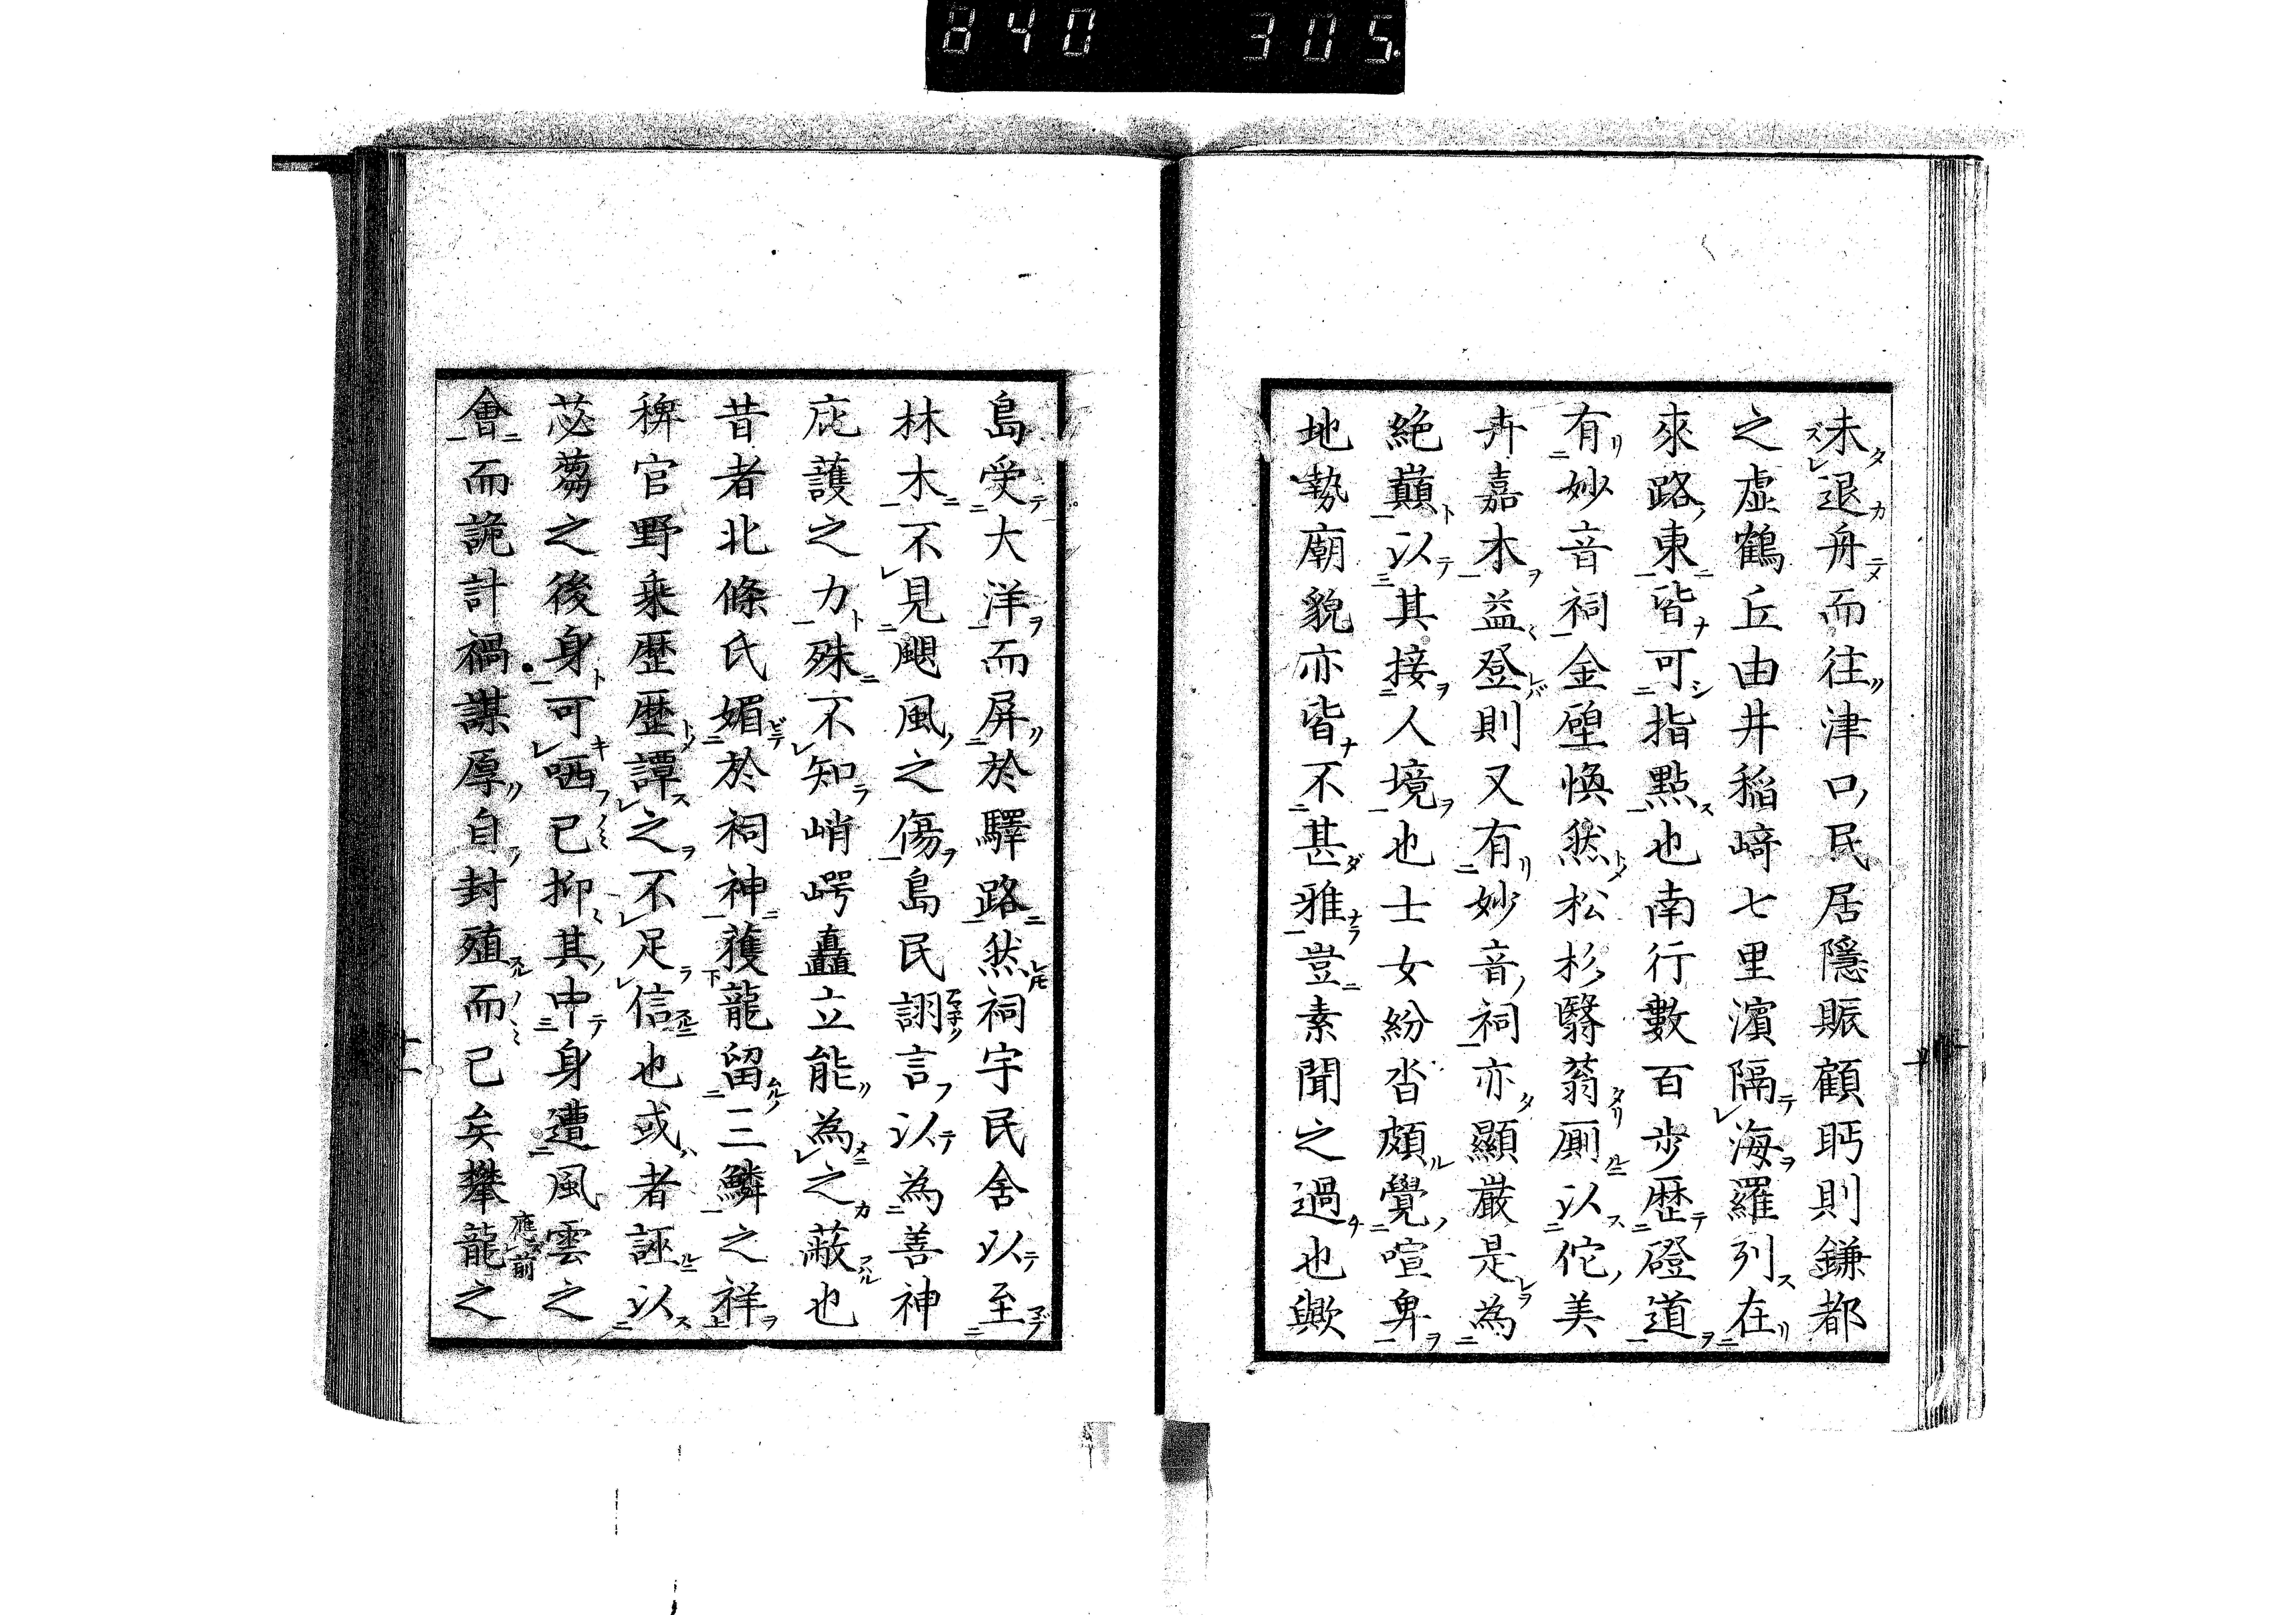 840 305
未退舟而往津口民居隱賑顧眄則鎌都
之虛鶴丘由井稲﨑七里濱隔海羅列在
來路東皆可指點也南行數百步歷磴道
有妙音祠金壁煥然松杉翳蓊厠以佗美
卉嘉木益登則又有妙音祠亦顯嚴是為
絶巔以其接人境也士女紛沓頗覺喧卑
地勢廟貌亦皆不甚雅豈素聞之過也歟
島受大洋而屏於驛路然祠宇民舍以至
林木不見颶風之傷島民詡言以為善神
庇護之力殊不知峭崿矗立能為之蔽也
昔者北條氏媚於祠神獲龍留三鱗之祥
稗官野乗歴歴譚之不足信也或者誣以
苾蒭之後身可哂已抑其中身遭風雲之
會而詭計禍謀厚自封殖而已矣攀龍之
應前